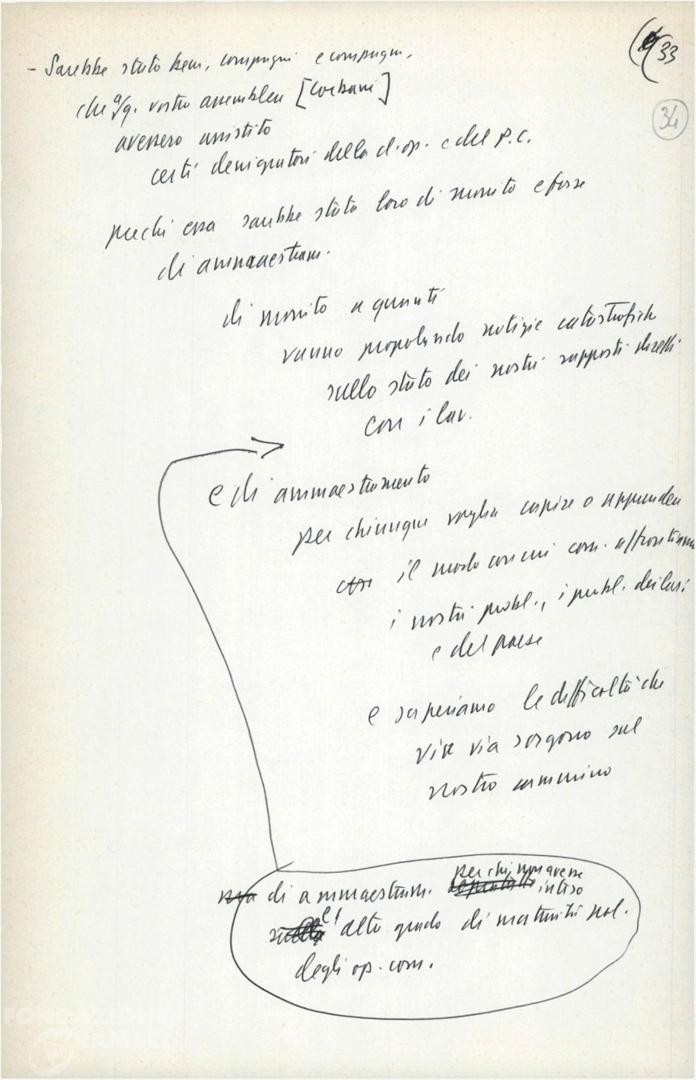 33
34
- Sarebbe stato bene, compagni e compagne,
che a q. vostra assemblea [Corbani]
avessero assistito
certi denigratori della cl. op. e del P.C.
perché essa sarebbe stata loro di monito e forse
di ammaestram.
di monito a quanti
vanno propalando notizie catastrofiche
sullo stato dei nostri rapporti diretti
con i lav.
e di ammaestramento
per chiunque voglia capire o apprendere
con il modo con cui com. affrontiamo
i nostri probl., i probl. dei lav.
e del paese
e superiamo le difficoltà che
via via sorgono sul
nostro cammino
ma di ammaestram. per chi non avesse
inteso
sulla l' alto grado di maturità pol.
degli op. com.